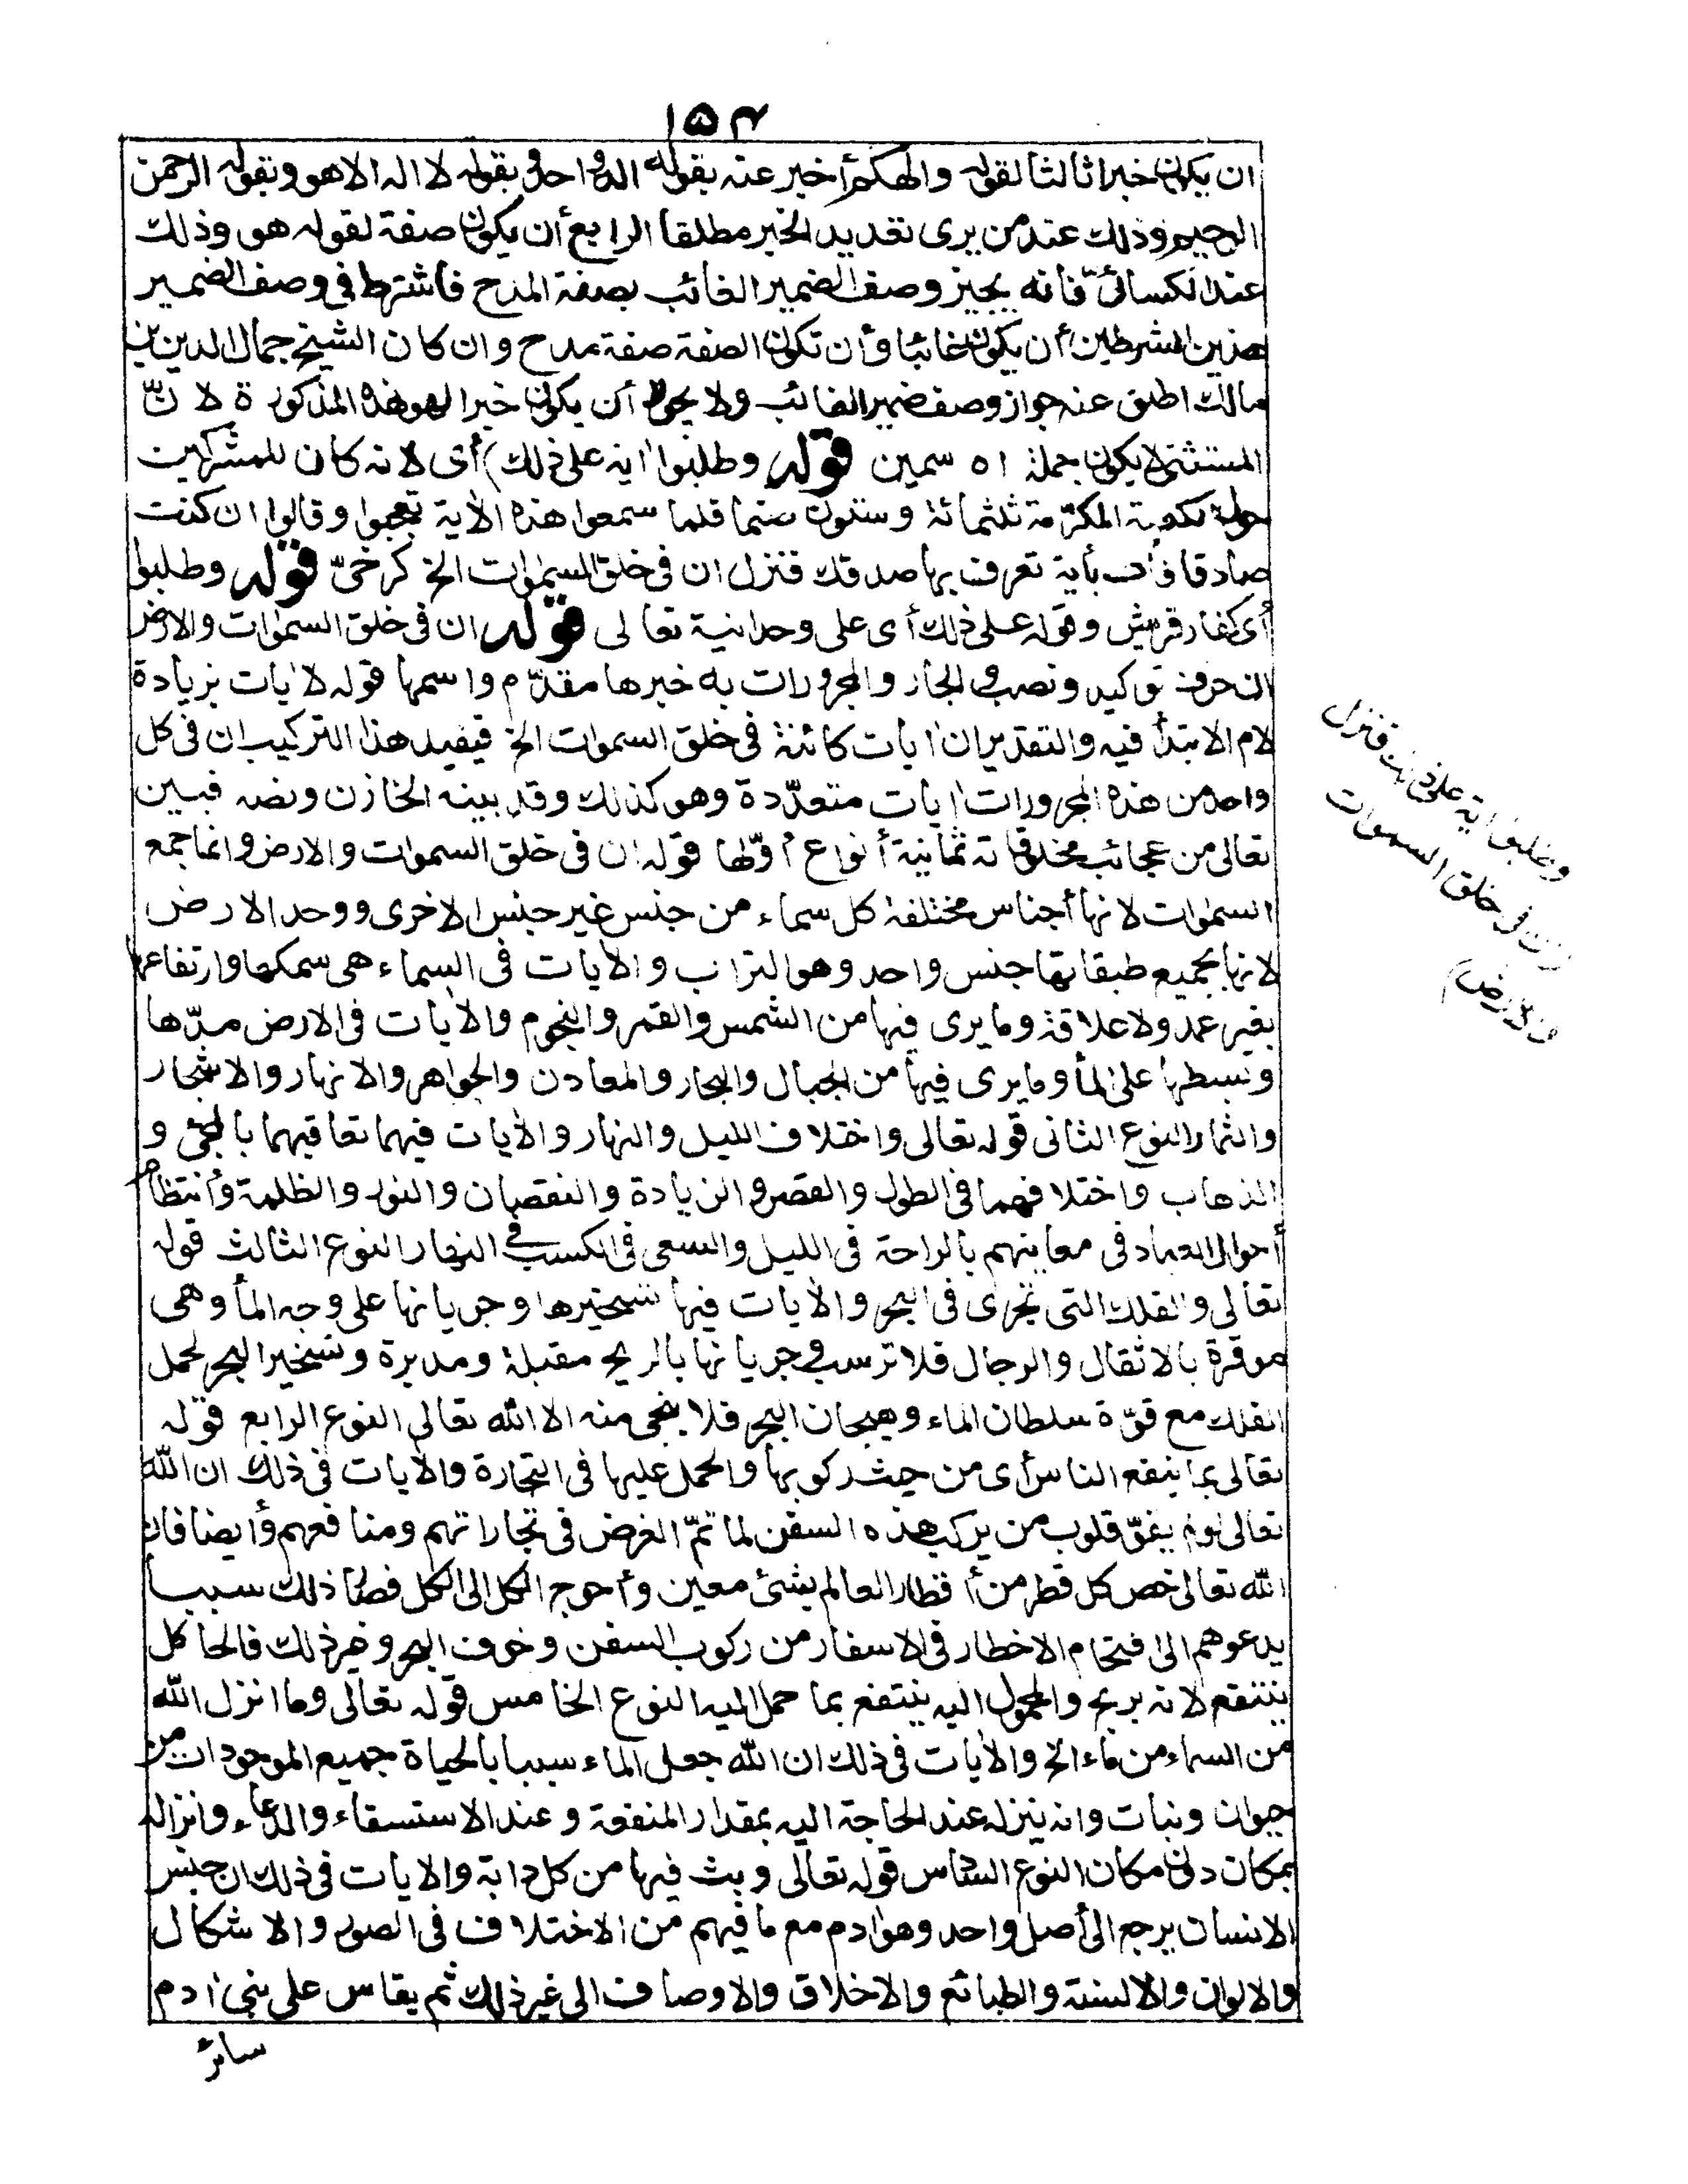 ١٥٣
ان يكون خبرا ثالثا لقوله والهكم أخبر عنه بقوله اله واحد وبقوله لا اله الا هو وبقوله الرحمن
الرحيم وذلك عند من يرى تعديد الخبر مطلقا الرابع أن يكون صفة لقوله هو وذلك
عند الكسائىّ فانه يجيز وصف الضمير الغائب بصفة المدح فاشترط فى وصف الضمير
هذين الشرطين أن يكون غائبا وأن تكون الصفة صفة مدح وان كان الشيخ جمال الدين بن
مالك اطلق عنه جواز وصف ضمير الغائب ولا يجوز أن يكون خبرا لهو هذه المذكورة لانّ
المستثنى لا يكون جملة اه سمين قوله وطلبوا اٰية على ذلك) أى لانه كان للمشركين
حول الكعبة المكرّمة ثلثمائة وستون صنما فلما سمعوا هذه الاٰية تعجبوا وقالوا ان كنت
صادقا فأت بأية نعرف بها صدقك فنزل ان فى خلق السمٰوات الخ كرخىّ قوله وطلبوا
أى كفار قريش وقوله على ذلك أى على وحدانية تعالى قوله ان فى خلق السمٰوات والارض
ان حرف توكيد ونصب والجار والمجرورات به خبرها مقدّم واسمها قوله لاٰيات بزيادة
لام الابتدأ فيه والتقدير ان اٰيات كائنة فى خلق السموات الخ فيفيد هذا التركيب ان فى كل
واحد من هذه المجرورات اٰيات متعدّدة وهو كذلك وقد بينه الخازن ونصه فبين
تعالى من عجائب مخلوقاته ثمانية أنواع أوّلها قوله ان فى خلق السموات والارض وانما جمع
السمٰوات لانها أجناس مختلفة كل سماء من جنس غير جنس الاخرى ووحد الارض
لانها بجميع طبقاتها جنس واحد وهو التراب والاٰيات فى السماء هى سمكها وارتفاعها
بغير عمد ولا علاقة وما يرى فيها من الشمس والقمر والنجوم والاٰيات فى الارض مدّها
وبسطها على الماٰ وما يرى فيها من الجبال والبحار والمعادن والجواهر والانهار والاشجار
والثمار النوع الثانى قوله تعالى واختلاف الليل والنهار والاٰيات فيهما تعاقبهما بالمجئ و
الذهاب واختلافهما فى الطول والقصر والزيادة والنقصان والنور والظلمة وأنتظام
أحوال العباد فى معاشهم بالراحة فى الليل والسعى فى الكسب فى النهار النوع الثالث قوله
تعالى والفلك التى تجرى فى البحر والاٰيات فيها تسخيرها وجريانها على وجه المأ وهى
موقرة بالاثقال والرجال فلا ترسب وجريانها بالريح مقبلة ومدبرة وتسخير البحر لحمل
الفلك مع قوّة سلطان الماء وهيجان البحر فلا ينجى منه الا الله تعالى النوع الرابع قوله
تعالى بما ينفع الناس أى من حيث ركوبها والحمل عليها فى التجارة والاٰيات فى ذلك ان الله
تعالى لو لم يقوّ قلوب من يركب هذه السفن لما تمّ الغرض فى تجاراتهم ومنافعهم وأيضا فان
الله تعالى خص كل قطر من أقطار العالم بشئ معين وأحوج الكل الى الكل فصار ذلك سببا
يدعوهم الى اقتحام الاخطار فى الاسفار من ركوب السفن وخوف البحر وغير ذلك فالحامل
ينتفع لانه يربح والمحمول اليه ينتفع بما حمل اليه النوع الخامس قوله تعالى وما انزل الله
من السماء من ماء الخ والاٰيات فى ذلك ان الله جعل الماء سببا بالحياة جميع الموجودات من
حيوان ونبات وانه ينزله عند الحاجة اليه بمقدار المنفعة وعند الاستسقاء والدعاء وانزاله
بمكان دون مكان النوع السادس قوله تعالى وبث فيها من كل دابة والاٰيات فى ذلك ان جنس
الانسان يرجع الى أصل واحد وهو اٰدم مع ما فيهم من الاختلاف فى الصور والاشكال
والالوان والالسنة والطبائع والاخلاق والاوصاف الى غير ذلك ثم يقاس على بنى اٰدم
سائر
وطلبوا اٰية على ذلك فنزل
ان فى خلق السموات
والارض)